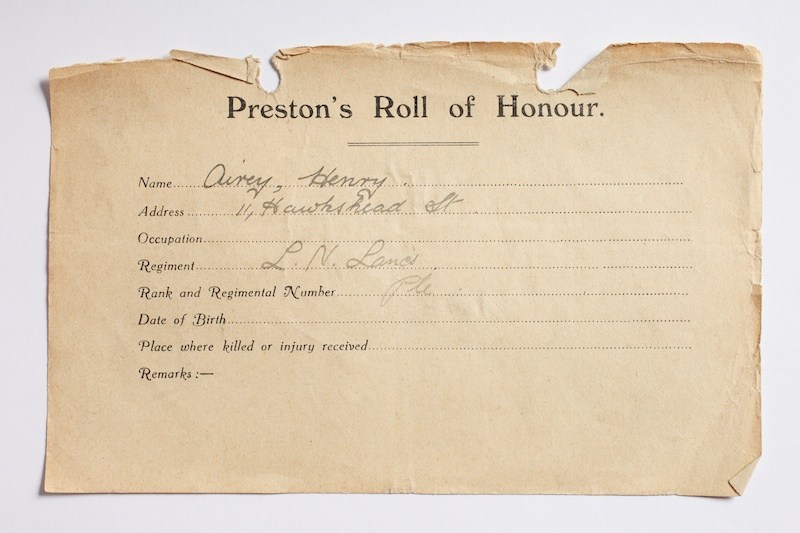 Preston's Roll of Honour.
Name.... Airey, Henry.
Address.... 11, Hawkshead St
Occupation....
Regiment.... L. N. Lancs
Rank and Regimental Number.... Pte.
Date of Birth....
Place where killed or injury received....
Remarks :—